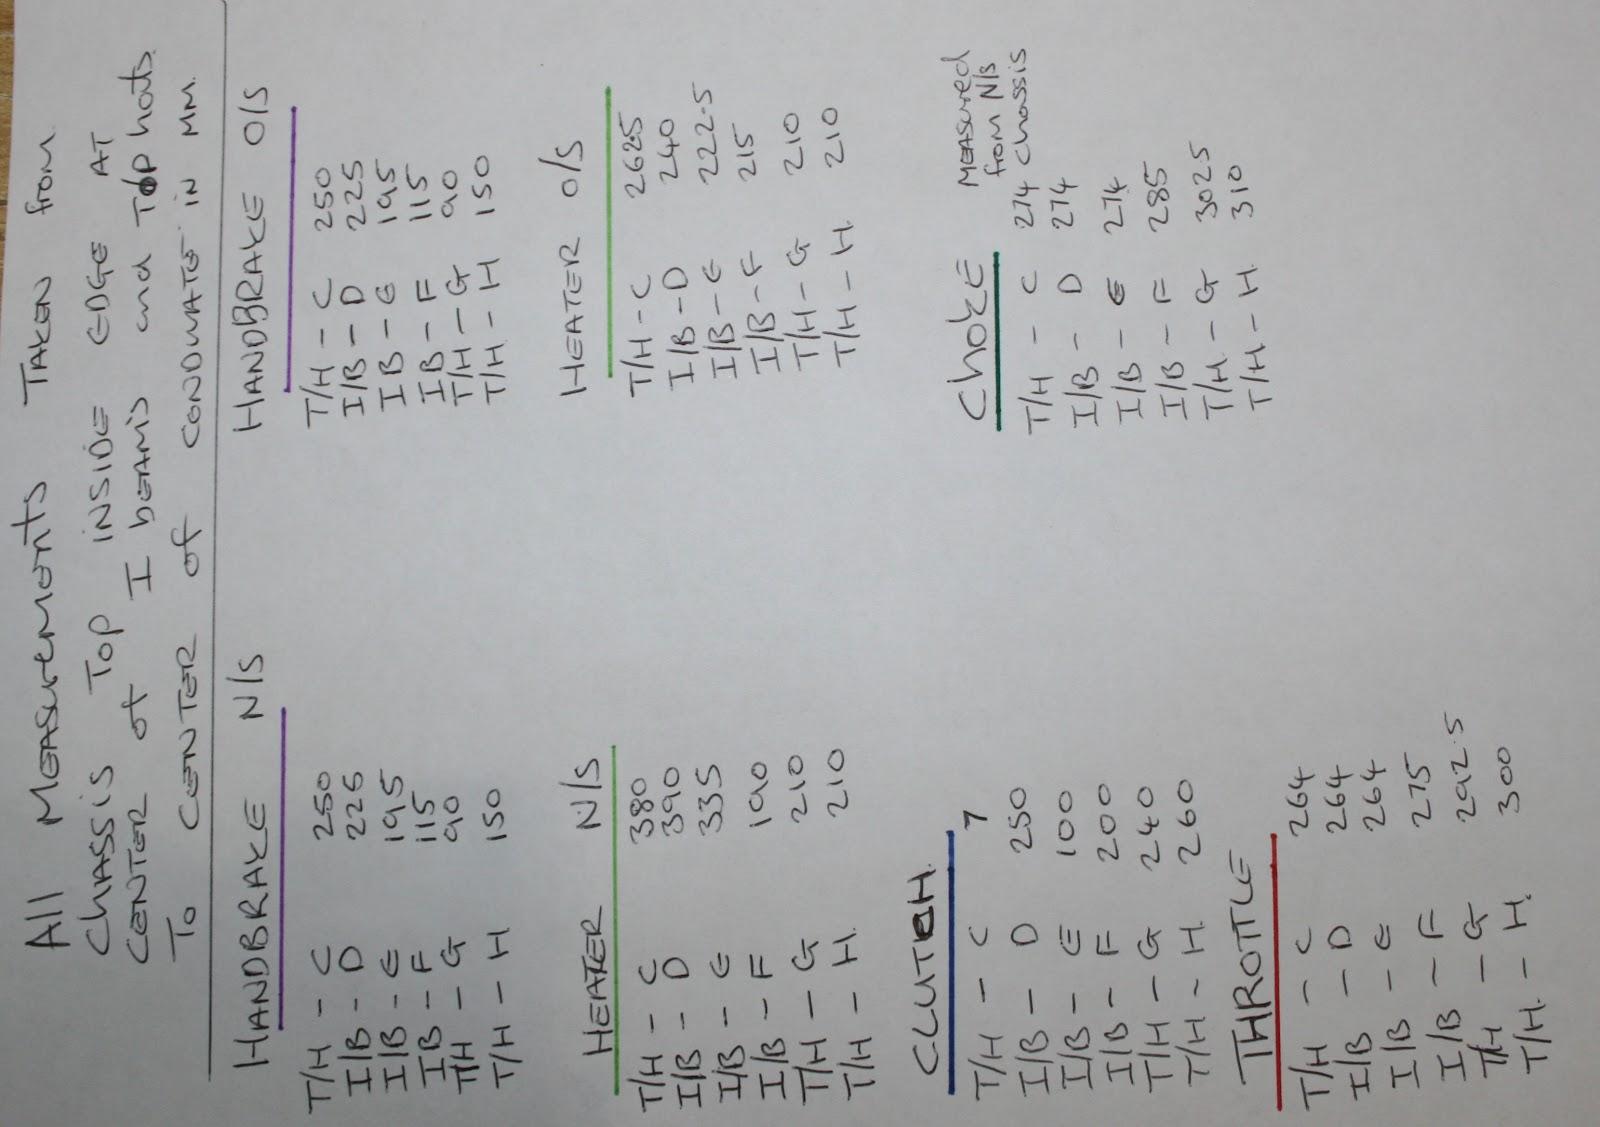 All MEASUREMENTS TAKEN from
CHASSIS TOP INSIDE EDGE AT
CENTER of I BEAMS and TOP hats.
To CENTER of CONDUATE IN MM.
HANDBRAKE N/S
T/H - C 250
I/B - D 225
I/B - E 195
I B - F 115
T/H - G 90
T/H - H 150
HANDBRAKE O/S
T/H - C 250
I/B - D 225
I B - E 195
I B - F 115
T/H - G 90
T/H - H 150
HEATER N/S
T/H - C 380
I/B - D 390
I/B - E 335
I/B - F 190
T/H - G 210
T/H - H. 210
HEATER O/S
T/H - C 262.5
I/B - D 240
I/B - E 222.5
I/B - F 215
T/H - G 210
T/H - H. 210
CLUTCH.
T/H - C 7
I/B - D 250
I/B - E 100
I/B - F 200
T/H - G 240
T/H - H. 260
CHOKE MEASURED
from N/S
chassis
T/H - C 274
I/B - D 274
I/B - E 274
I/B - F 285
T/H - G 302.5
T/H - H. 310
THROTTLE
T/H - C 264
I/B - D 264
I/B - E 264
I/B - F 275
T/H - G 292.5
T/H. - H. 300